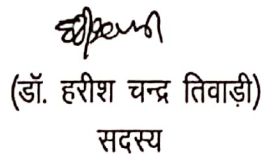 (डॉ. हरीश चन्द्र तिवाड़ी)
सदस्य